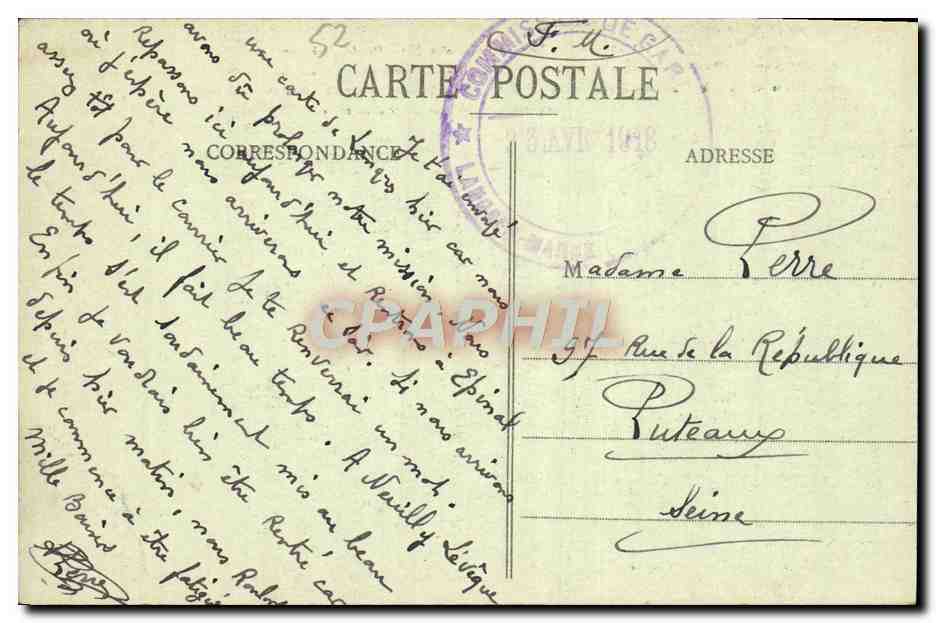 52
F. M.
CARTE POSTALE
COMMIS DE GAR
23 AVR 1918
CORRESPONDANCE
ADRESSE
Je t'ai envoyé
une carte de Langres hier car nous
avons dû prolonger notre mission. Nous
Repassons ici aujourd'hui et Rentrons à Epinal
où j'espère nous arriverons ce soir. Si nous arrivons
assez tôt pour le courrier Je te Renverrai un mot.
Aujourd'hui, il fait beau temps. A Neuilly Levêque
le temps s'est soudainement mis au beau
Enfin Je voudrais bien être Rentré car
depuis hier matin, nous Roulons
et Je commence à être fatigué
Mille Baisers
Madame Perre
97 Rue de la République
Puteaux
Seine
CPAPHIL